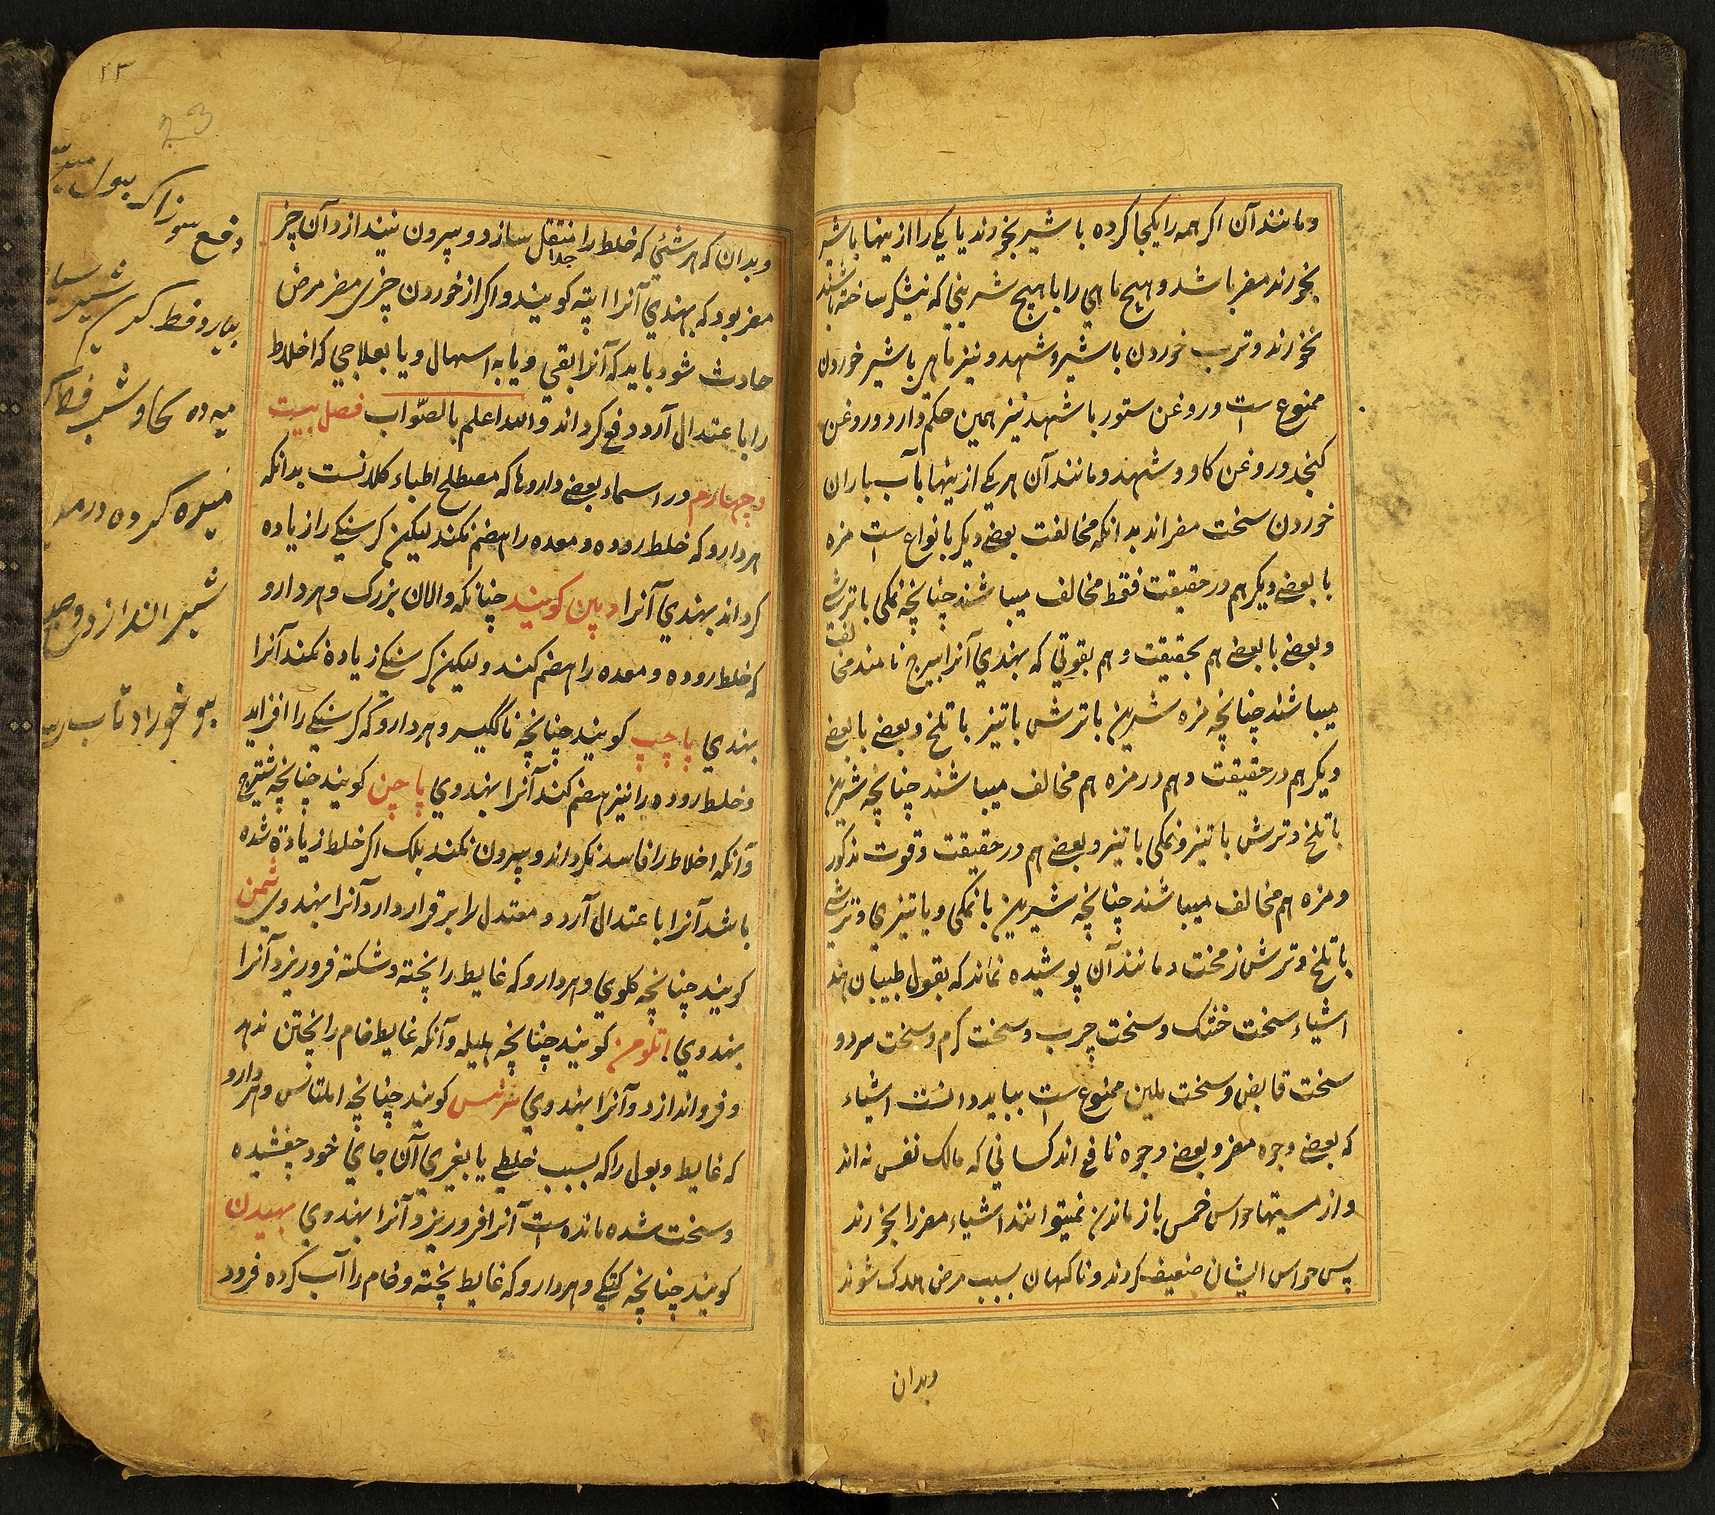 و مانند آن اکر همه را یکجا کرده با شیر بخورند یا یکی را ازینها با شیر
بخورند مضر باشد و هیچ ماهی را با هیچ شرینی که نیشکر ساخته باشند
نخورند و ترب خوردن با شیر و شهد و نیز ماهی با شیر خوردن
ممنوع است و روغن ستور با شهد نیز همین حکم دارد و روغن
کنجد و روغن کاو و شهد و مانند آن هر یکی ازینها با آب باران
خوردن سخت مضراند بدانکه مخالفت بعضی دیکر بانواع است مزه
با بعضی دیکر هم در حقیقت فقط مخالف میباشند چنانچه نمکی با ترشی
و بعضی با بعضی هم بحقیقت و هم بقوتی که بهندی آنرا بیرج نامند مخالف
میباشند چنانچه مزه شیرین با ترش با تیز با تلخ و بعضی با بعضی
دیکر هم در حقیقت و هم در مزه هم مخالف میباشند چنانچه شیرین
با تلخ و ترش با تیز و نمکی با تیز و بعضی هم در حقیقت و قوت مذکور
و مزه هم مخالف میباشند چنانچه شیرین با نمکی و با تیزی و ترشی
با تلخ و ترش زمخت و مانند آن پوشیده نماند که بقول طبیبان هند
اشیاء سخت خشک و سخت چرب و سخت کرم و سخت سرد و
سخت قابض و سخت ملین ممنوع است بباید دانست اشیاء
که بعضی وجوه مضر و بعضی وجوه نافع اند کسانی که مالک نفس نه اند
و از مستیها حواس خمس باز ماندن نمیتوانند اشیاء مضر را بخورند
پس حواس ایشان ضعیف کردند و ناکهان بسبب مرض هلاک شوند
وبدان
۲۳
23
و بدان که هر شئی که خلط را منتقل سازد و بیرون نیندازد آن چیز
جدا
مضر بود که بهندی آنرا اپته کویند و اکر از خوردن چیزی مضر مرض
حادث شود باید که آنرا بقی و یا به اسهال و یا بعلاجی که اخلاط
را باعتدال آرد دفع کرداند و الله اعلم بالصواب فصل بیست
و چهارم در اسماء بعضی داروها که مصطلح اطباء کلانست بدانکه
هر دارو که خلط روده و معده را هضم نکند لیکن کرسنکی را زیاده
کرداند بهندی آنرا دیپن کویند چنانکه والان بزرک و هر دارو
که خلط روده و معده را هضم کند و لیکن کرسنکی زیاده نکند آنرا
بهندی پاچپ کویند چنانچه ناکیسر و هر دارو که کرسنکی را افزاید
و خلط روده را نیز هضم کند آنرا بهندوی پاچن کویند چنانچه شیترج
و آنکه اخلاط را فاسد نکرداند و بیرون نکند بلک اکر خلط زیاده شده
باشد آنرا باعتدال آرد و معتدل را برقرار دارد آنرا بهندوی شمن
کویند چنانچه کلوی و هر دارو که غایط را پخته و شکسته فرو ریزد آنرا
بهندوی انلومن کویند چنانچه هلیله و آنکه غایط خام را پختن ندهد
و فرو اندازد و آنرا بهندوی سرنس کویند چنانچه املتاس و هر دارو
که غایط و بول را که بسبب خلطی یا بغیری آن جای خود چفشیده
و سخت شده مانده است آنرا فرو ریزد و آنرا بهندوی بهیدن
کویند چنانچه کتکی و هر دارو که غایط پخته و خام را آب کرده فرود
دفع سوزاک بول
بیارد فقط
میده کرده در
شیر اندازد